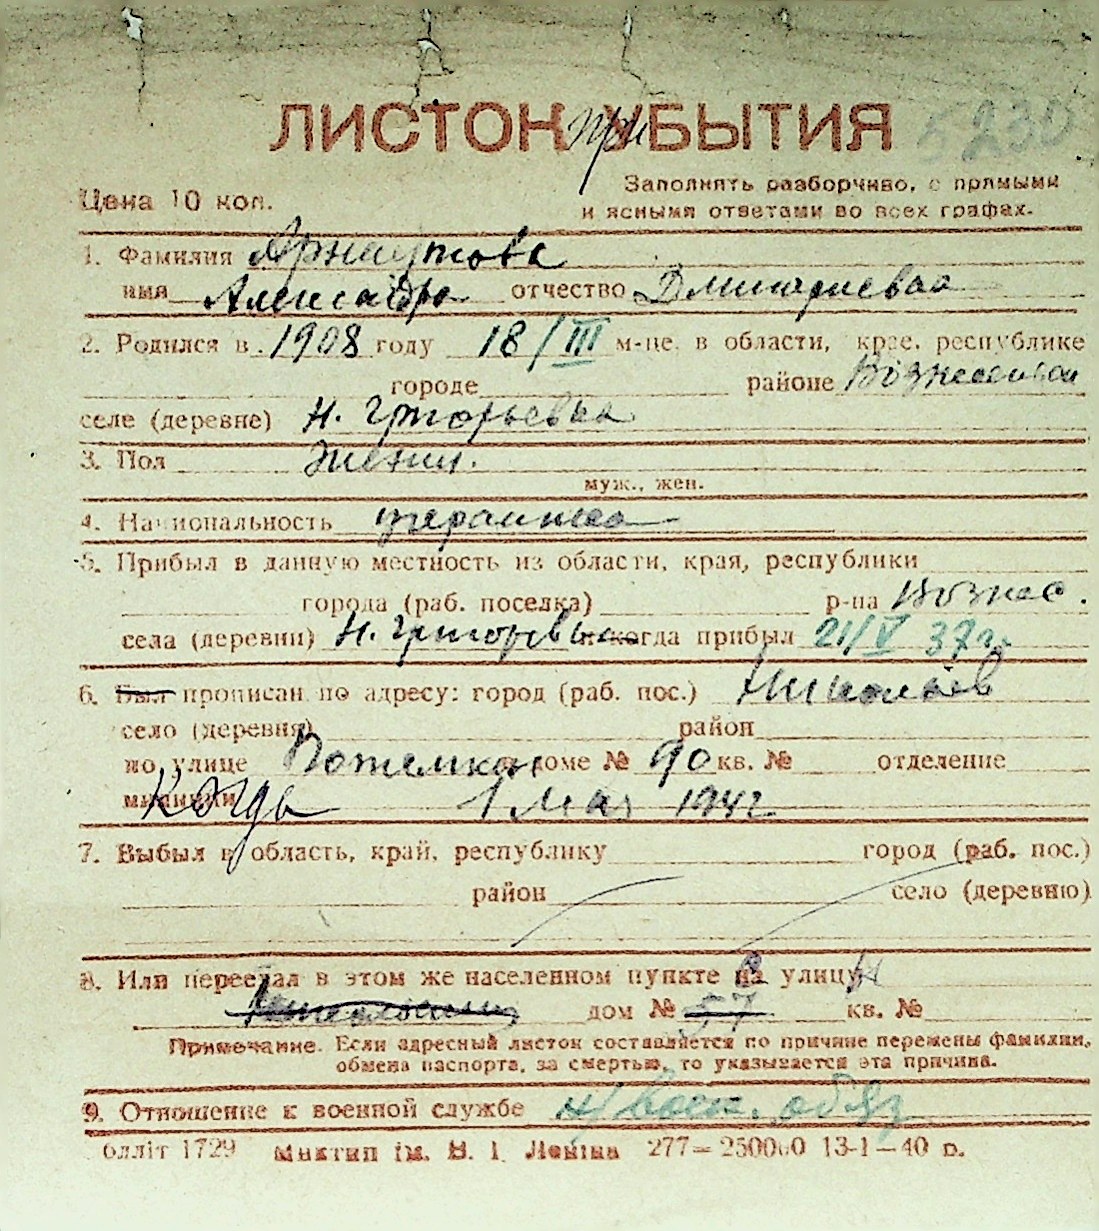 ЛИСТОК при УБЫТИЯ 5230
Цена 10 коп.
Заполнять разборчиво, с прямыми
и ясными ответами во всех графах.
1. Фамилия Арнаутова
имя Александра отчество Дмитриевна
2. Родился в 1908 году 18/III м-це, в области, крае, республике
городе районе Вознесенском
селе (деревне) Н. Григорьевка
3. Пол женск.
муж., жен.
4. Национальность украинка
5. Прибыл в данную местность из области, края, республики
города (раб. поселка) р-на Вознес.
села (деревни) Н. Григорьевка и когда прибыл 21/V 37 г.
6. Был прописан по адресу: город (раб. пос.) Николаев
село (деревня) район
по улице Потемкин в доме № 90 кв. № отделение
милиции Когда 1 мая 1942
7. Выбыл в область, край, республику город (раб. пос.)
район село (деревню)
8. Или переехал в этом же населенном пункте на улицу
дом № 57 кв. №
Примечание. Если адресный листок составляется по причине перемены фамилии,
обмена паспорта, за смертью, то указывается эта причина.
9. Отношение к военной службе н/воен. обяз
олліт 1729 Миктип ім. В. І. Леніна 277—250000 13-1—40 р.